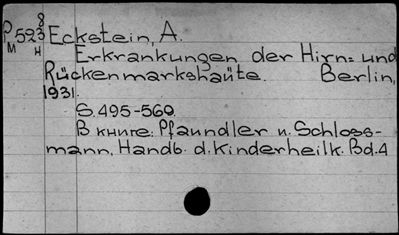 8
P523 Eckstein, A.
M H
Erkrankungen der Hirn= und
Rückenmarkshäute. Berlin,
1931.
S. 495-560.
В книге: Pfaundler u. Schloss-
mann, Handb. d. Kinderheilk. Bd. 4